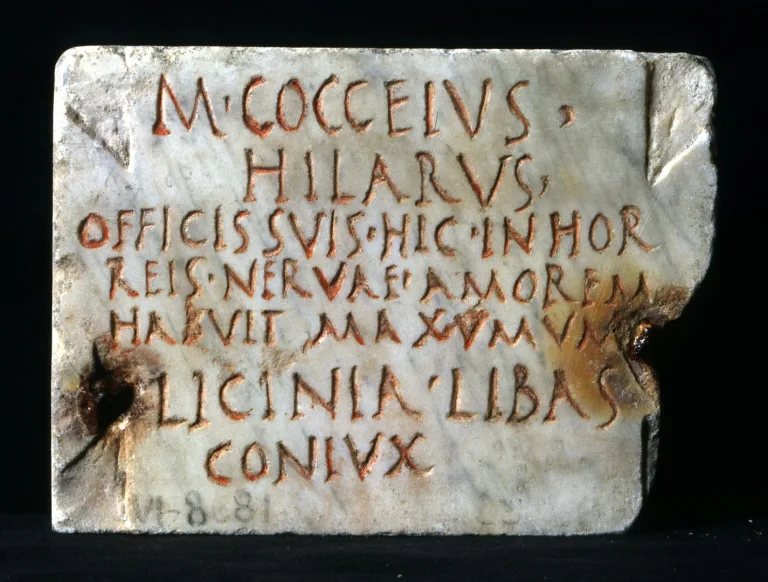 M · COCCEIVS ,
HILARVS,
OFFICISSVIS · HIC · IN HOR
REIS · NERVAE · AMOREM
HABVIT MAXVMVM
LICINIA · LIBAS
CONIVX
VI-8681